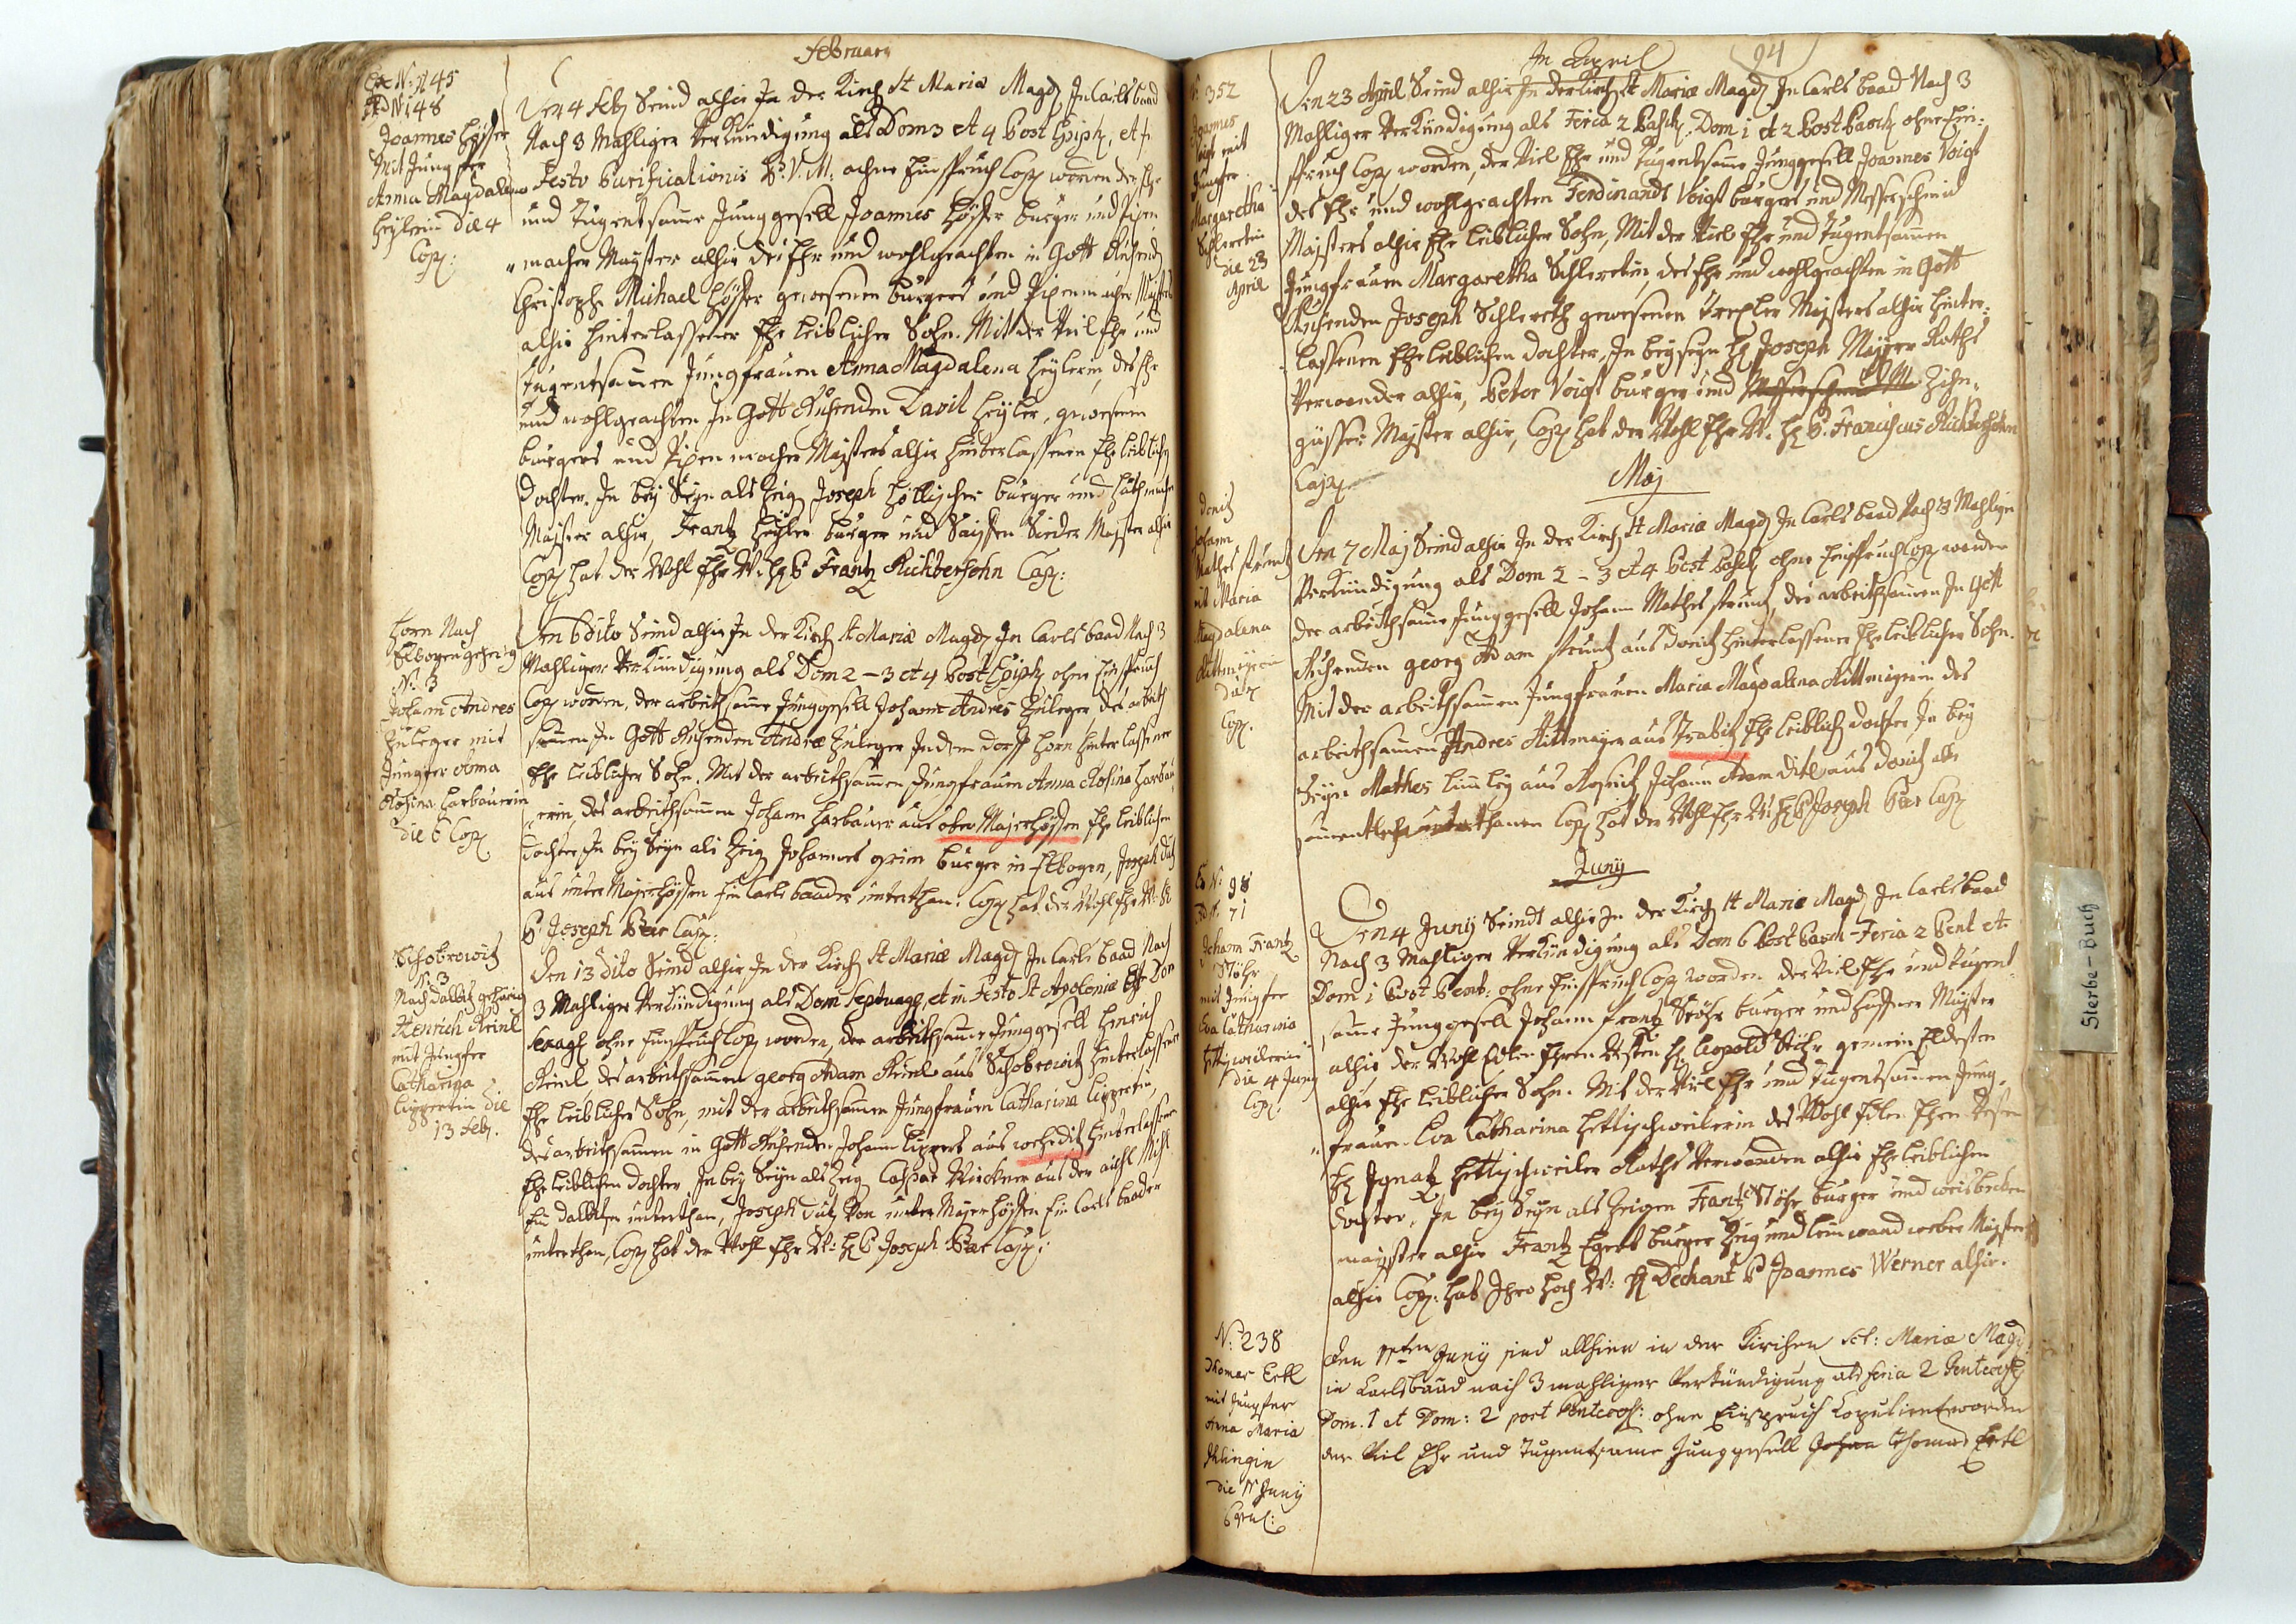 February
Ex N: 145
Ad N: 48
Joannes Hösser
Mit Jungfer
Anna Magdalena
Heylerin die 4
Cop:
Den 4 feb: Seind alhir In der Kirch St Mariæ Magd: In Carls baad
Nach 3 Mahliger Verkündigung als Dom 3 et 4 Post Epiph: et in
Festo Purificationis B: V: M: ohne Einspruch Cop: worden der Ehr
und Tugentsame Junggesell Joannes Hösser burger und
macher Majster alhir des Ehr und wohlgeachten in Gott Ruhenden
Christoph Michael Hösser gewesenen burgers und macher Majsters
alhir hinterlassener Ehe leiblicher Sohn. Mit der Viel Ehr und
Tugentsamen Jungfrauen Anna Magdalena Heylerin, des Ehr
und wohlgeachten In Gott Ruhenden Davit Heyler, gewesenen
burgers und macher Majsters alhir hinterlassenen Ehe leiblichen
dochter. In bey Seyn als Zeig Joseph burger und huthmacher
Majster alhir, Frantz Heyler burger und Saiffen Sieder Majster alhir
Cop: hat der Wohl Ehr W: H: P Frantz Richtersohn Cap:
Horn Nach
Elbogen gehörig
N: 3
Johann Andres
Zuleger mit
Jungfer Anna
Rosina Harbauerin
die 6 Cop:
Den 6 dito Seind alhir In der Kirch St Mariæ Magd: In Carls baad Nach 3
Mahliger Verkündigung als Dom 2 – 3 et 4 Post Epiph: ohne Einspruch
Cop: worden, der arbeithsame Junggesell Johann Andres Zuleger, des arbeith
samen In Gott Ruhenden Andreæ Zuleger In dem dorff Horn hinterlassener
Ehe leiblicher Sohn. Mit der arbeithsamen Jungfrauen Anna Rosina Harbau
erin, des arbeithsamen Johann Harbauer aus ober Majerhöffen Ehe leiblichen
dochter In bey Seyn als Zeig Johannes grim burger in Elbogen, Joseph
aus unter Majerhöffen Ein Carls baader unterthan. Cop: hat der Wohl Ehr W: H:
P: Joseph Bær Cap:
Schobrowitz
N: 3
Nach dallwitz gehörig
Henrich Reinl
mit Jungfer
Catharina
Lippertin die
13 Feb:
Den 13 dito Seind alhir In der Kirch St Mariæ Magd: In Carls baad Nach
3 Mahliger Verkündigung als Dom Septuag: et in Festo St Apoloniæ et Dom
Sexag: ohne Einspruch Cop: worden, der arbeithsame Junggesell Henrich
Reinl des arbeithsamen georg Adam Reinl aus Schobrowitz hinterlassener
Ehe leiblicher Sohn, mit der arbeithsamen Jungfrauen Catharina Lippertin,
des arbeithsamen in Gott Ruhenden Johann Lippert aus weheditz hinterlassenen
Ehe leiblichen dochter In bey Seyn als Zeig Caspar aus der
Ein dallwitzer unterthan, Joseph Von unter Majerhöffen Ein Carls baader
unterthan, Cop: hat der Wohl Ehr W: H: P Joseph Bær Cap:
94
In April
N: 352
Joannes
Voigt mit
Jungfer
Margaretha
Schleretin
die 23
April
Den 23 April Seind alhir In der Kirch St Mariæ Magd: In Carls baad Nach 3
Mahliger Verkündigung als Feria 2 Pasch: Dom 1 et 2 Post Pasch: ohne Ein:
spruch Cop: worden, der Viel Ehr und Tugentsame Junggesell Joannes Voigt
des Ehr und wohlgeachten Ferdinandt Voigt burgers und Messerschmid
Majsters alhir Ehe leiblicher Sohn, Mit der Viel Ehr und Tugentsamen
Jungfrauen Margaretha Schleretin, des Ehr und wohlgeachten in Gott
Ruhenden Joseph Schlereth gewesenen Drexler Majsters alhir hinter:
lassenen Ehe leiblichen dochter, In bey seyn H: Joseph Majer Raths
Verwander alhir, Peter Voigt burger und Messerschmid M: Zihn,
güsser Majster alhir, Cop: hat der Wohl Ehr W: H: P: Franciscus Richtersohn
Cap:
Maj
donitz
Johann
Mathes struntz
mit Maria
Magdalena
Rittmejerin
die 7
Cop:
Den 7 Maj Seind alhir In der Kirch St Mariæ Magd: In Carls baad Nach 3 Mahliger
Verkündigung als Dom 2 – 3 et 4 Post Pasch: ohne Einspruch Cop: worden
der arbeithsame Junggesell Johann Mathes struntz, des arbeithsamen In Gott
Ruhenden georg Adam struntz aus donitz hinterlassener Ehe leiblicher Sohn.
Mit der arbeithsamen Jungfrauen Maria Magdalena Rittmejerin des
arbeithsamen Andres Rittmejer aus Ehe leiblich dochter, In bey
Seyn Mathes aus Johann Adam aus donitz alle
samentlich unterthanen Cop: hat der Wohl Ehr W: H: P Joseph Bær Cap:
Juny
Ex N: 98
Ad N: 71
Johann Frantz
Stöhr
mit Jungfer
Eva Catharina
Hettischweilerin
die 4 Juny
Cop:
Den 4 Juny Seindt alhir In der Kirch St Mariæ Magd: In Carlsbaad
Nach 3 Mahliger Verkündigung als Dom 6 Post Pasch – Feria 2 Pent et
Dom 1 Post Pent: ohne Einspruch Cop: worden der Viel Ehr und Tugent
same Junggesell Johann Frantz Stöhr burger und Haffner Majster
alhir, der Wohl Edlen Ehren Vesten H: Leopold Stöhr gemein Eldesten
alhir Ehe leiblicher Sohn. Mit der Viel Ehr und Tugentsamen Jung,
frauen Eva Catharina Hettischweilerin des Wohl Edlen Ehren Vesten
H: Ignatz Hettischweiler Raths Verwanden alhir Ehe leiblichen
dochter, In bey Seyn als Zeigen Frantz Stöhr burger und weisbecken
majster alhir Frantz Egert burger Zeug und leinwand weber Majster
alhir Cop: hat Ihro Hoch W: H: Dechant P Joannes Werner alhir.
N: 238
Thomas Ertl
mit Jungfer
Anna Maria
Klingin
die 11 Juny
Copul:
Den 11ten Juny sind allhier in der Kirchen Sct: Mariæ Magd:
in Carlsbaad nach 3 mahliger Verkündigung als Feria 2 Pentecost:
Dom. 1 et Dom: 2 post Pentecost: ohne Einspruch Copulirt worden
der Viel Ehr und Tugentsame Junggesell Johann Thomas Ertl
Sterbe-Buch